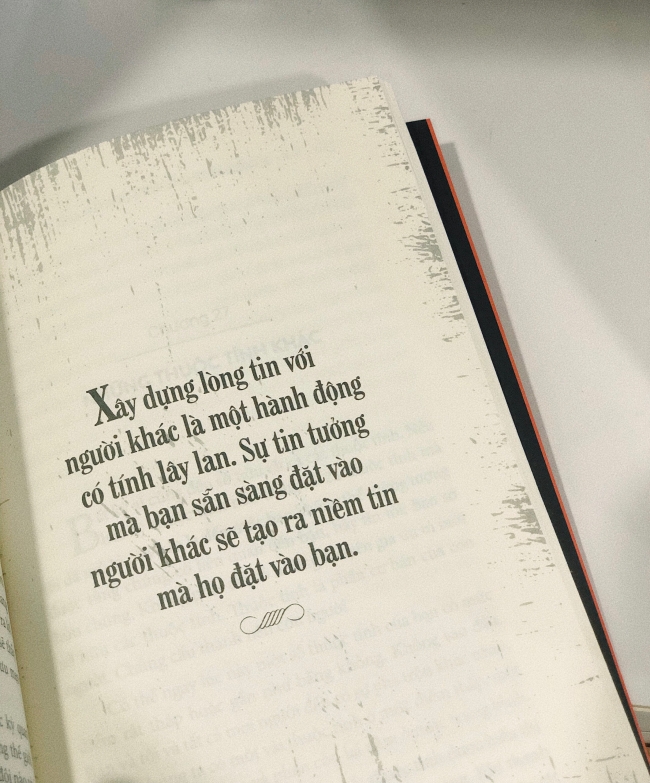 Xây dựng lòng tin với
người khác là một hành động
có tính lây lan. Sự tin tưởng
mà bạn sẵn sàng đặt vào
người khác sẽ tạo ra niềm tin
mà họ đặt vào bạn.